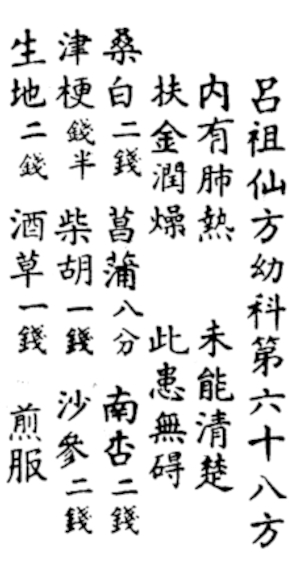 呂祖仙方幼科第六十八方
內有肺熱　未能清楚
扶金潤燥　此患無碍
桑白二錢　菖蒲八分　南杏二錢
津梗錢半　柴胡一錢　沙參二錢
生地二錢　酒草一錢　煎服